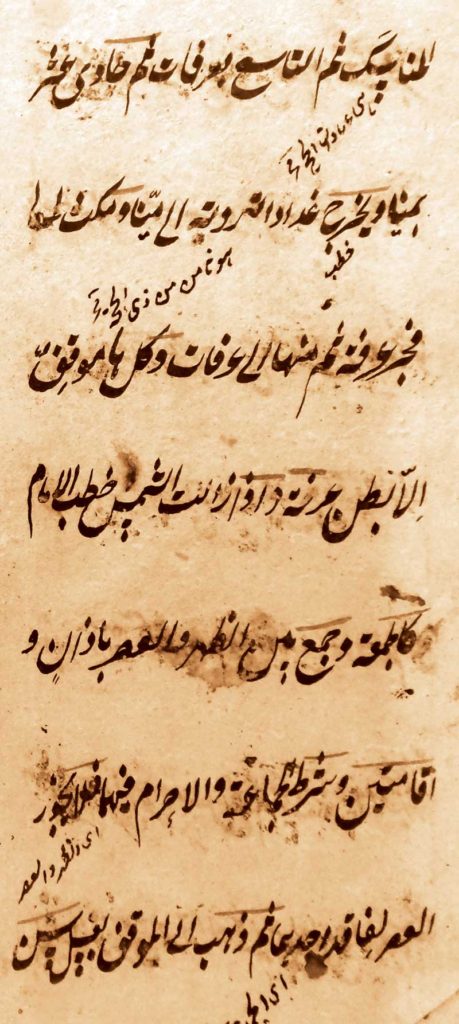 المناسك ثم التاسع بعرفات ثم حادى عشر
بمينا ويخرج غداة التروية الى مينا ومكث الى
خطب
هو ثامن من ذى الحجة
فجر عرفة ثم منها الى عرفات وكلها موقف
الّا بطن عرنة واذا زالت الشمس خطب الامام
كالجمعة وجمع بين الظهر والعصر باذانٍ و
اقامتين وشرط الجماعة والاحرام فيهما فلا يجوز
اى الظهر والعصر
العصر لفاقد احديهما ثم ذهب الى الموقف بغسل سن